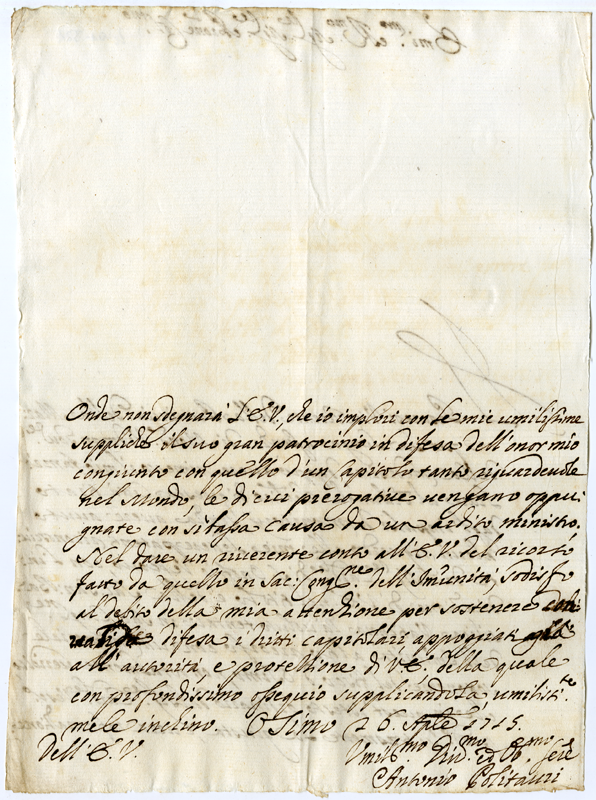 Onde non sdegnarà L'E.V., che io implori con le mie umilissime
suppliche il suo gran patrocinio in difesa dell'onor mio
congiunto con quello d'un Capitolo tanto riguardevole
nel Mondo, le di cui prerogative vengano oppu-
gnate con sì falsa causa da un ardito ministro.
Nel dare un riverente conto all'E.V. del ricorso
fatto da quello in Sac: Congne. dell'Immunità, sodisfo
al debito della mia attenzione per sostenere
difesa i dritti capitolari appoggiati
all'autorità e protettione di V.E., della quale
con profondissimo ossequio supplicandola, umilite.
me le inchino. Osimo 26 Aple 1725.
Dell'E.V.
Umilmo. Div.mo ed Ob.mo Sere
Antonio Politauri